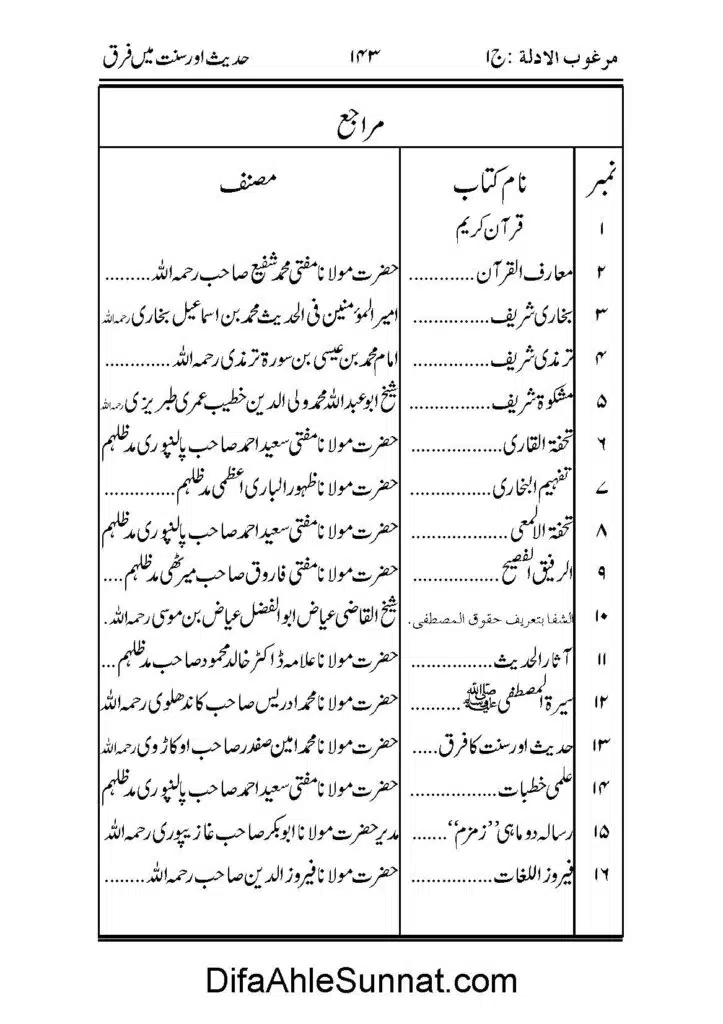 مرغوب الادلة : ج۱ ۱۴۳ حدیث اور سنت میں فرق
مراجع
نمبر نام کتاب مصنف
۱ قرآن کریم
۲ معارف القرآن............. حضرت مولانا مفتی محمد شفیع صاحب رحمہ اللہ.........
۳ بخاری شریف............... امیر المؤمنین فی الحدیث محمد بن اسماعیل بخاری رحمہ اللہ
۴ ترمذی شریف............... امام محمد بن عیسی بن سورۃ ترمذی رحمہ اللہ.............
۵ مشکوۃ شریف................ شیخ ابو عبد اللہ محمد ولی الدین خطیب عمری طبریزی رحمہ اللہ
۶ تحفۃ القاری.................. حضرت مولانا مفتی سعید احمد صاحب پالنپوری مدظلہم
۷ تفہیم البخاری................ حضرت مولانا ظہور الباری اعظمی مدظلہم..............
۸ تحفۃ الالمعی................... حضرت مولانا مفتی سعید احمد صاحب پالنپوری مدظلہم
۹ الرفیق الفصیح................. حضرت مولانا مفتی فاروق صاحب میرٹھی مدظلہم....
۱۰ الشفا بتعریف حقوق المصطفی. شیخ القاضی عیاض ابو الفضل عیاض بن موسی رحمہ اللہ.
۱۱ آثار الحدیث................ حضرت مولانا علامہ ڈاکٹر خالد محمود صاحب مدظلہم...
۱۲ سیرۃ المصطفی ﷺ.......... حضرت مولانا محمد ادریس صاحب کاندھلوی رحمہ اللہ
۱۳ حدیث اور سنت کا فرق..... حضرت مولانا محمد امین صفدر صاحب اوکاڑوی رحمہ اللہ
۱۴ علمی خطبات................. حضرت مولانا مفتی سعید احمد صاحب پالنپوری مدظلہم
۱۵ رسالہ دوماہی ’’زمزم‘‘....... مدیر حضرت مولانا ابوبکر صاحب غازیپوری رحمہ اللہ
۱۶ فیروز اللغات................ حضرت مولانا فیروز الدین صاحب رحمہ اللہ........
DifaAhleSunnat.com